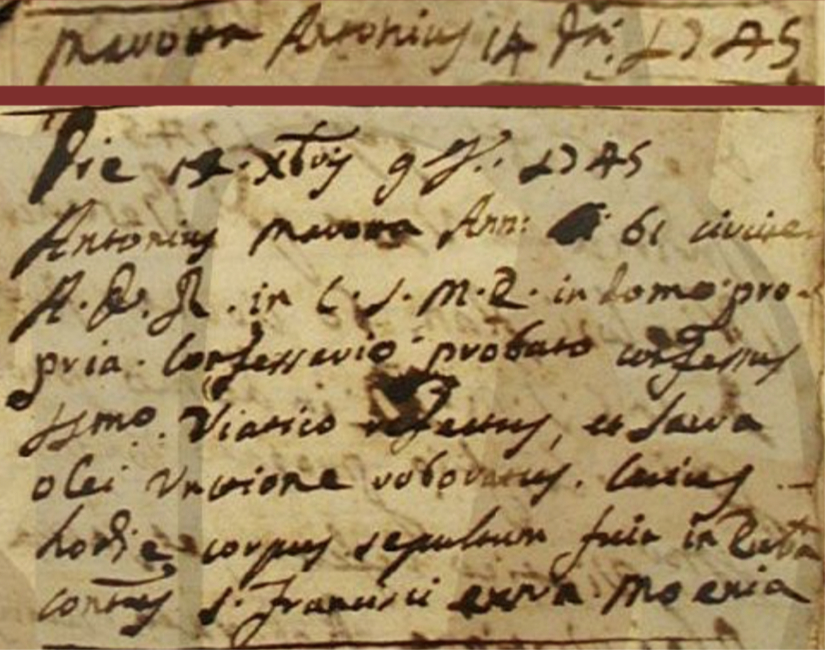 Mavorra Antonius 14 Xbris 1745
Die 14 Xbris 9 I. 1745
Antonius Mavorra Ann: 61 circiter
A. D. R. in C. S. M. E. in domo pro-
pria. Confessario probato confessus
ssmo. Viatico refectus, et sacra
olei Unctione roboratus. Cuius
hodie corpus sepultum fuit in
Contus S. Francisci extra Moenia